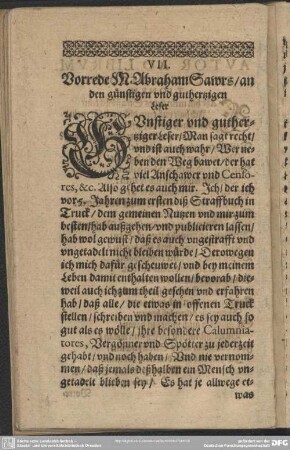 VII.
Vorrede M. Abraham Sawrs/an
den günstigen vnd guthertzigen
Leser
GVnstiger vnd guther-
tziger Leser/Man sagt recht/
vnd ist auch wahr/Wer ne-
ben den Weg bawet/der hat
viel Anschawer vnd Censo-
res, &c. Also gehet es auch mir. Ich/der ich
vor 5. Jahren zum ersten diß Straffbuch in
Truck/dem gemeinen Nutzen vnd mir zum
besten/hab außgehen/vnd publicieren lassen/
hab wol gewust/daß es auch vngestrafft vnd
vngetadelt nicht bleiben würde/Derowegen
ich mich dafür gescheuwet/vnd bey meinem
Leben damit enthalten wollen/bevorab/die-
weil auch ich zum theil gesehen vnd erfahren
hab/daß alle/die etwas in offenen Truck
stellen/schreiben vnd machen/es sey auch so
gut als es wölle/ihre besondere Calumnia-
tores, Vergönner vnd Spötter zu jederzeit
gehabt/vnd noch haben/Vnd nie vernom-
men/daß jemals deßhalben ein Mensch vn-
getadelt blieben sey/Es hat je allwege et-
was